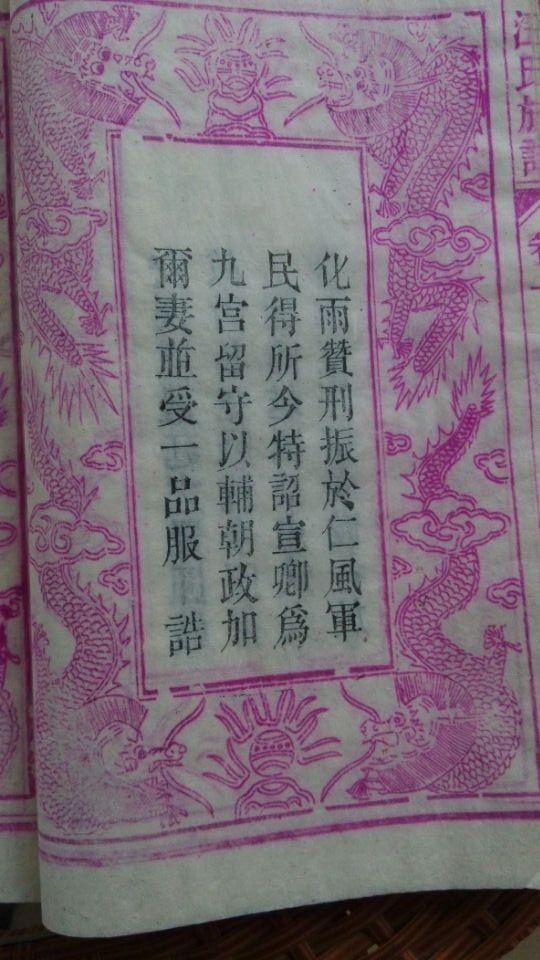 化雨贊刑振於仁風軍
民得所今特詔宣卿爲
九宫留守以輔朝政加
爾妻並受一品服　誥
氏族譜